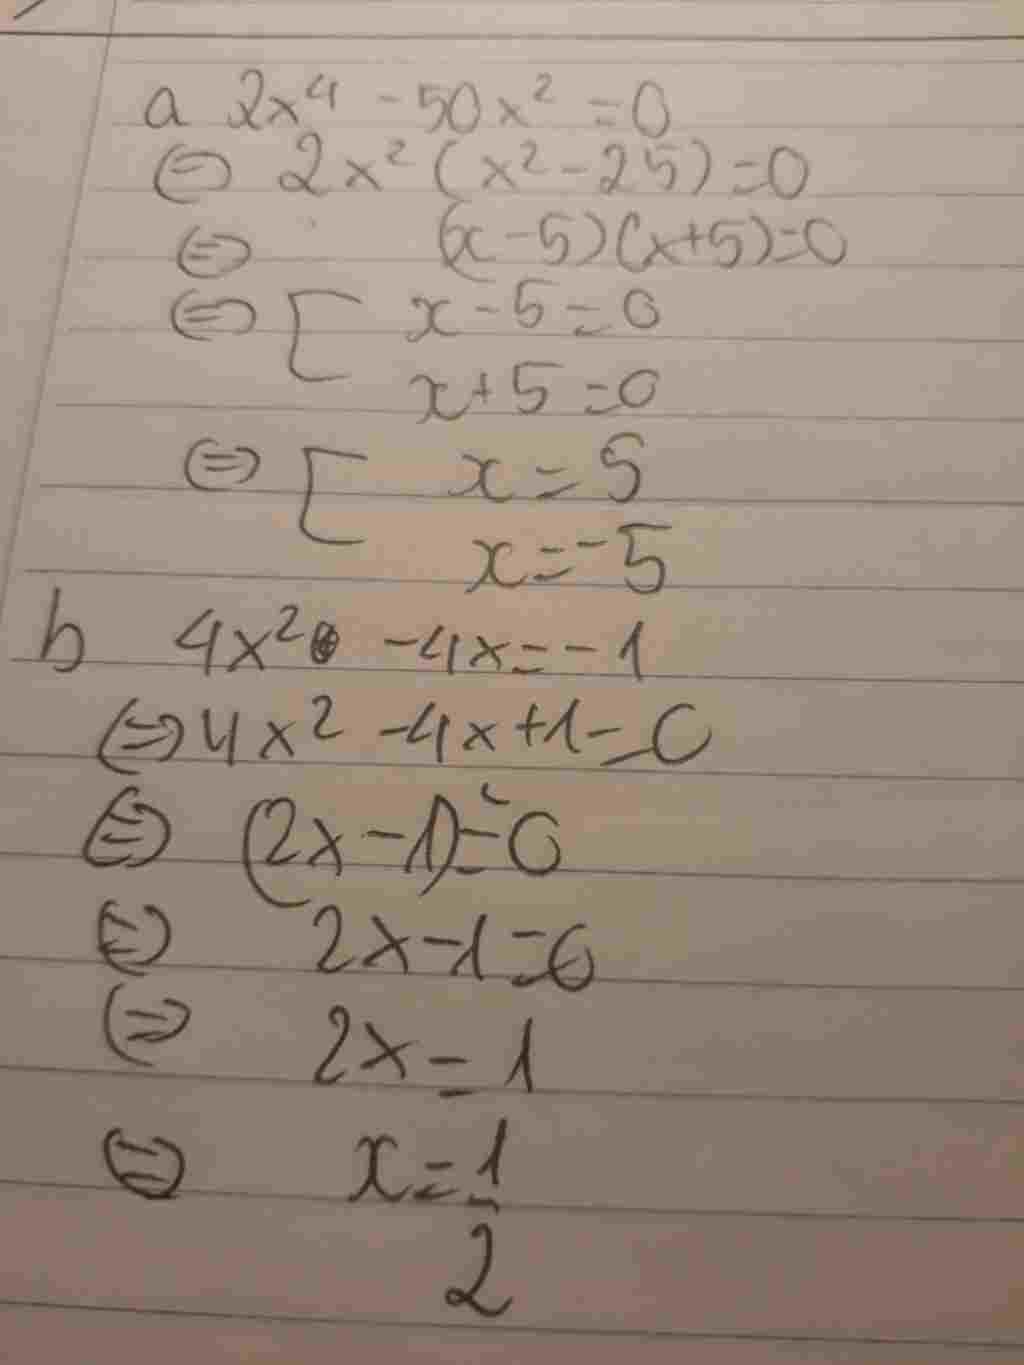 a 2x⁴ - 50x² = 0
⇔ 2x² (x² - 25) = 0
⇔ (x - 5)(x + 5) = 0
⇔ [ x - 5 = 0
x + 5 = 0
⇔ [ x = 5
x = -5
b 4x² - 4x = -1
⇔ 4x² - 4x + 1 = 0
⇔ (2x - 1)² = 0
⇔ 2x - 1 = 0
⇔ 2x = 1
⇔ x = 1
2